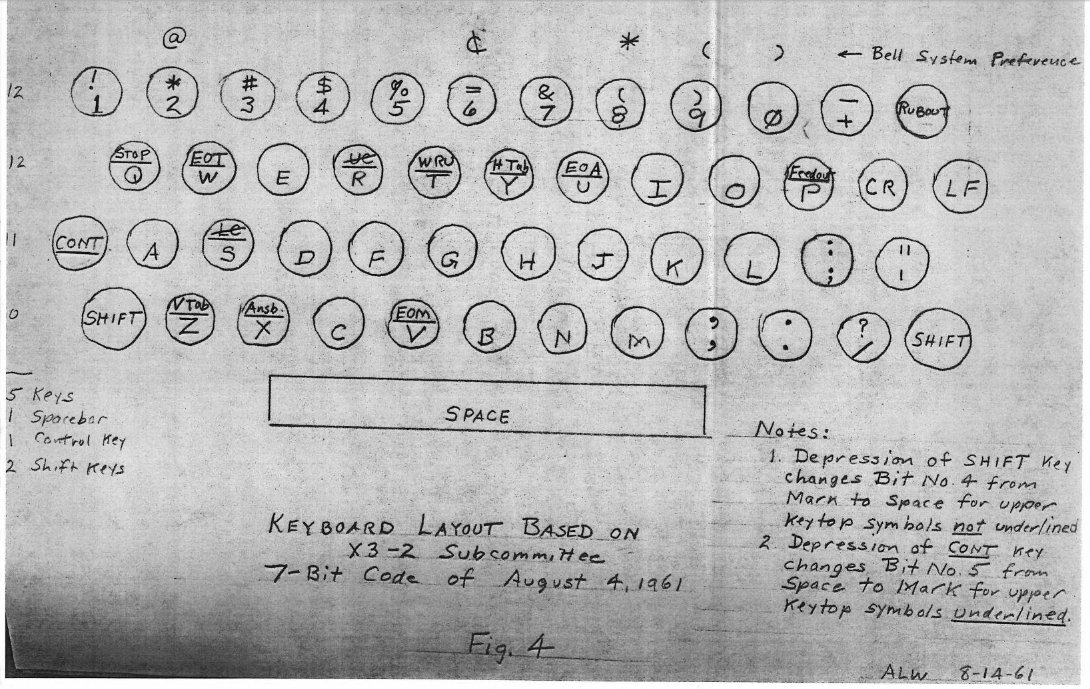 @ ¢ * ( ) ← Bell System Preference
12 ! 1 * 2 # 3 $ 4 % 5 = 6 & 7 ( 8 ) 9 Ø - + RUBOUT
12 STOP Q EOT W E UC R WRU T H Tab Y EOA U I O Feedout P CR LF
11 CONT A LC S D F G H J K L : ; " '
0 SHIFT V Tab Z Ansb. X C EOM V B N M , , : . ? / SHIFT
SPACE
5 Keys
1 Spacebar
1 Control Key
2 Shift Keys
KEYBOARD LAYOUT BASED ON
X3-2 Subcommittee
7-Bit Code of August 4, 1961
Fig. 4
Notes:
1. Depression of SHIFT Key
changes Bit No. 4 from
Mark to Space for upper
Keytop symbols not underlined
2 Depression of CONT Key
changes Bit No. 5 from
Space to Mark for upper
Keytop symbols underlined.
ALW 8-14-61